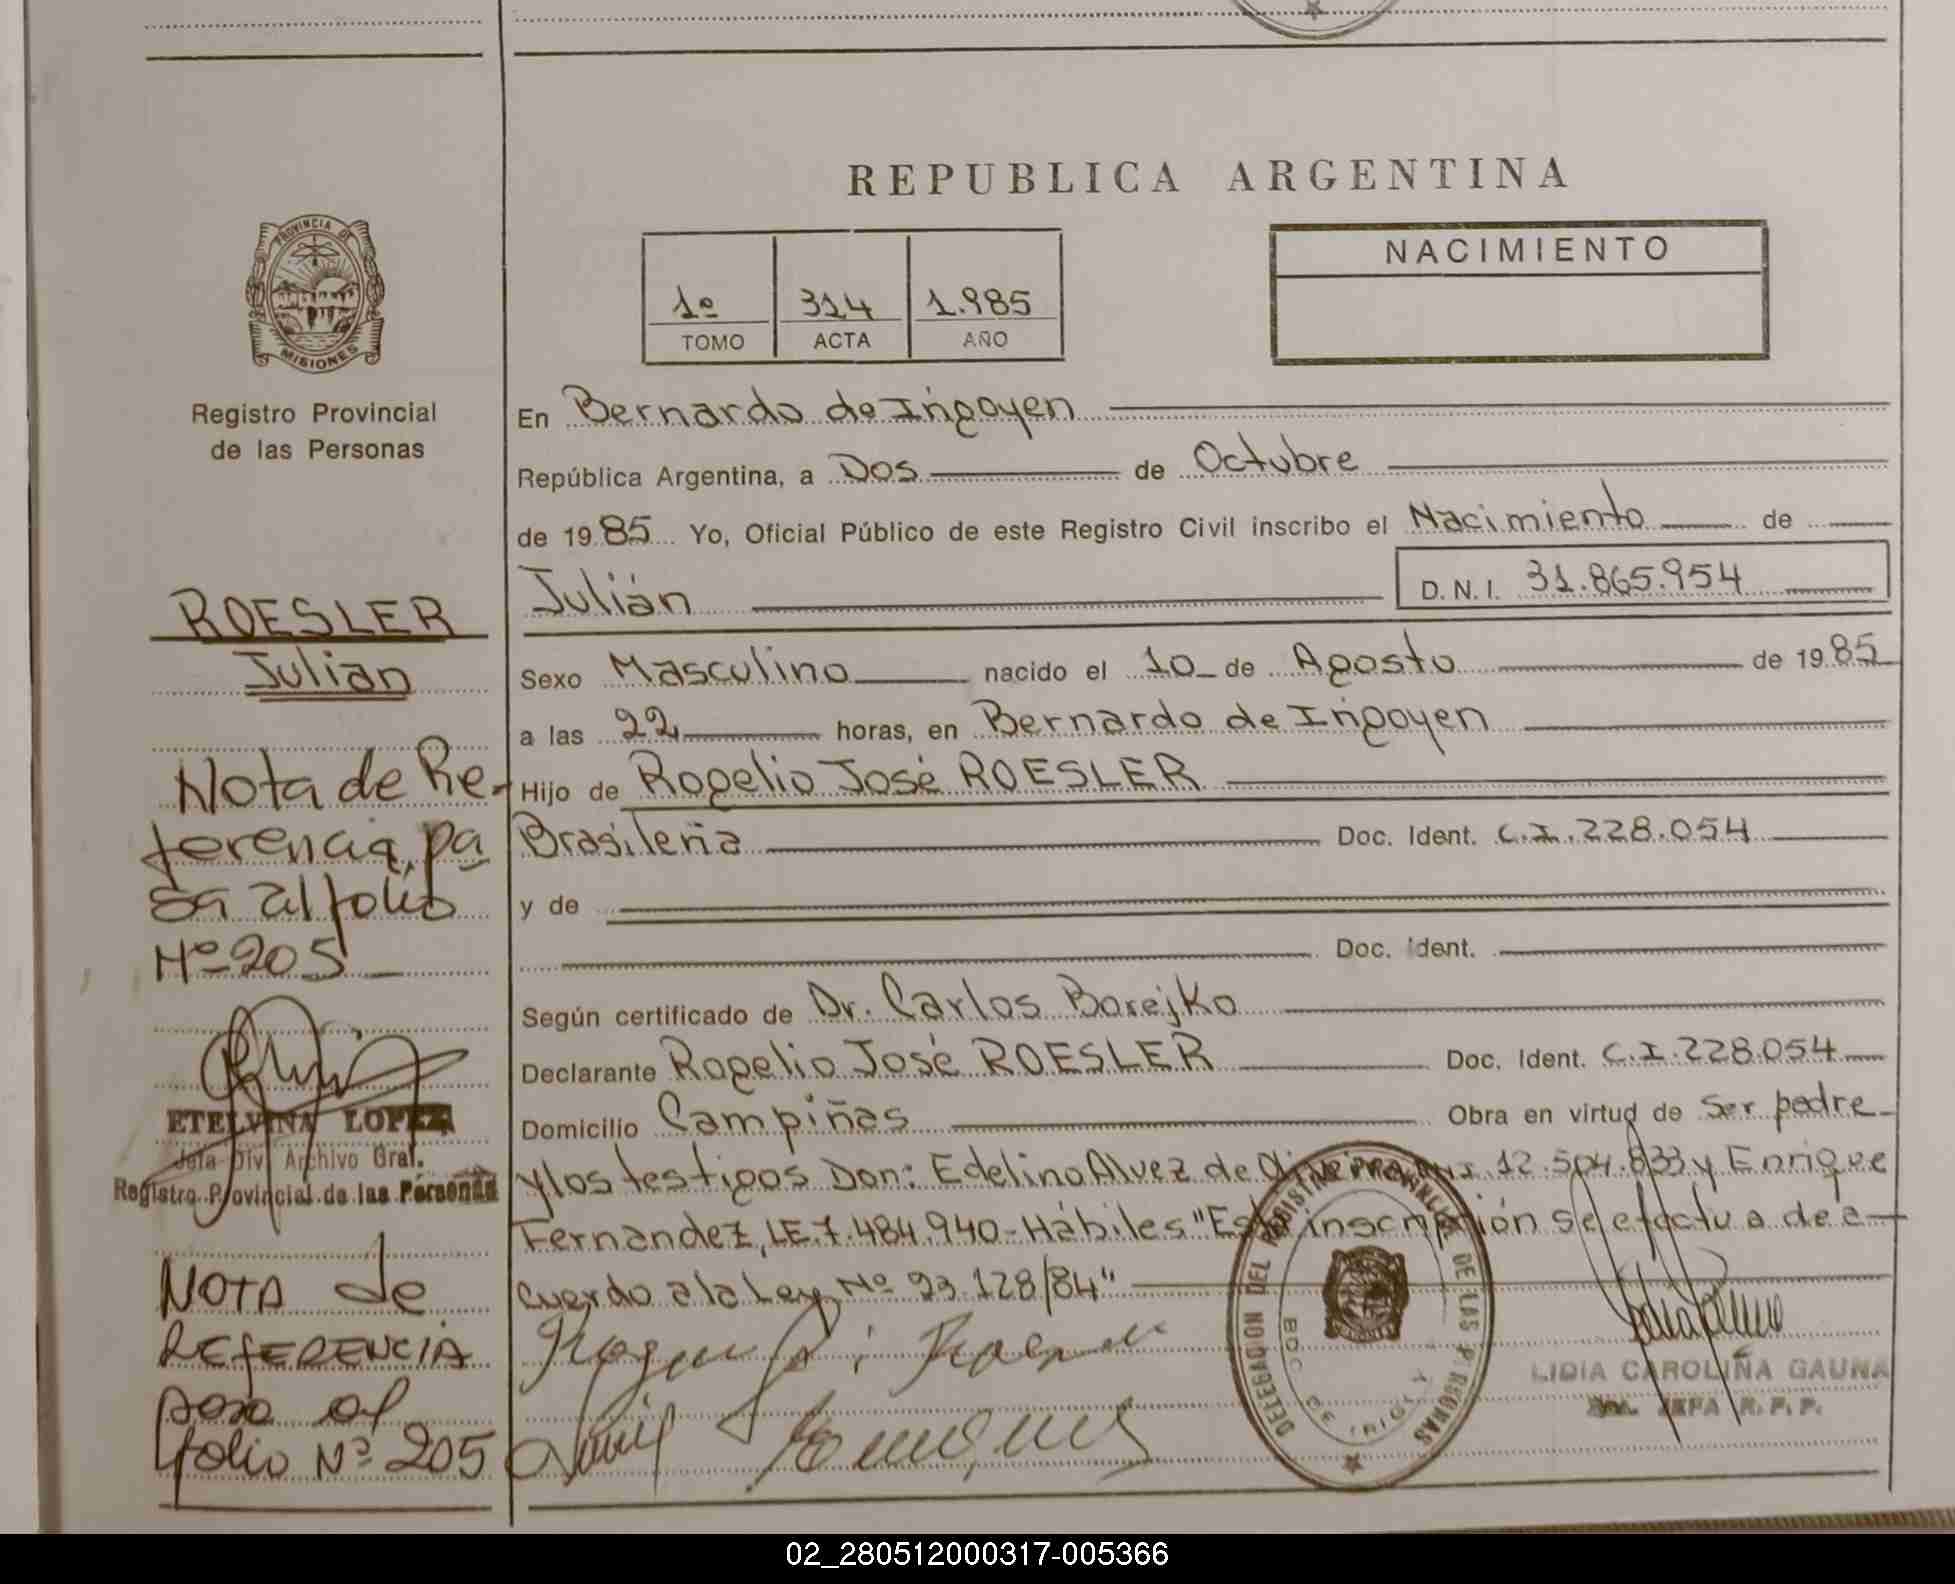 REPUBLICA ARGENTINA
PROVINCIA DE
MISIONES
Registro Provincial
de las Personas
1º 314 1.985
TOMO ACTA AÑO
NACIMIENTO
En Bernardo de Irigoyen
República Argentina, a Dos de Octubre
de 19 85 Yo, Oficial Público de este Registro Civil inscribo el Nacimiento de
Julián D.N.I. 31.865.954
Sexo Masculino nacido el 10 de Agosto de 19 85
a las 22 horas, en Bernardo de Irigoyen
Hijo de Rogelio José ROESLER
Brasileña Doc. Ident. C.I. 228.054
y de
Doc. Ident.
Según certificado de Dr. Carlos Borejko
Declarante Rogelio José ROESLER Doc. Ident. C.I. 228.054
Domicilio Campiñas Obra en virtud de Ser padre
y los testigos Don: Edelino Alvez de 12.504.833 y Enrique
Fernandez, LE. 7.484.940 - Hábiles "Esta inscripción se efectua de a-
cuerdo a la Ley Nº 23.128/84"
DELEGACION DEL REGISTRO PROVINCIAL DE LAS PERSONAS
BDO DE IRIGOY
LIDIA CAROLINA GAUNA
JEFA R. P. P.
ROESLER
Julian
Nota de Re-
ferencia, pa
sa al folio
Nº 205
ETELVINA LOPEZ
Jefa Div. Archivo Gral.
Registro Provincial de las Personas
NOTA de
REFERENCIA
pasa al
folio Nº 205
02_280512000317-005366